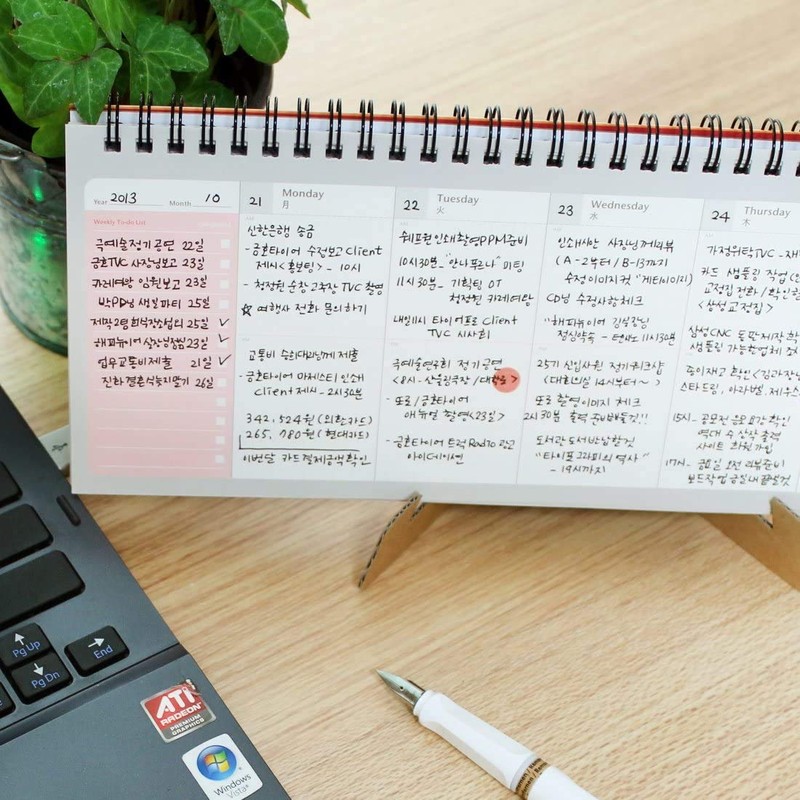 Year 2013 Month 10
Weekly To-do List
극예술정기공연 22일
금호TVC 사장님보고 23일
카레여왕 임원보고 23일
박PD님 생일파티 25일
제작2팀 회식장소섭외 25일 ✓
업무교통비제출 21일 ✓
진화결혼식늦지말기 26일
21 Monday
月
신한은행 송금
- 금호타이어 수정보고 Client
제시<홍보팀> - 10시
- 청정원 순창고추장 TVC 촬영
☆ 여행사 전화 문의하기
교통비 수희대리님께 제출
- 금호타이어 마제스티 인쇄
Client 제시 - 2시30분
342,524원 (외환카드)
265,780원 (현대카드)
이번달 카드결제금액확인
22 Tuesday
火
쉐프원인쇄촬영PPM준비
10시30분_"안나푸르나" 미팅
11시30분_ 기획팀 OT
청정원 카레여왕
내일11시 타이어프로 Client
TVC 시사회
극예술연구회 정기공연
- 또로/금호타이어
애뉴얼 촬영<23일>
- 금호타이어 트럭 Radio 광고
아이데이션
23 Wednesday
水
인쇄시안 사장님께리뷰
(A-2부터 / B-13까지
수정이미지컷 "게티이미지)
CD님 수정사항체크
"해피뉴이어 김실장님
점심약속 - 11시30분
25기 신입사원 정기워크샵
(대회의실 14시부터~)
또로 촬영이미지 체크
2시30분 출력 준비해둘것!!
도서관 도서반납할것
"타이포그라피의 역사"
- 19시까지
24 Thursday
木
가정위탁TVC -
카드 샘플링 작업
교정집 전화 / 확인
<삼성교정집>
삼성CNC 동판제작
샘플링 가능한업체
종이재고 확인
스타드림, 아라벨,
15시_ 공모전 응모요강 확인
역대 수상작 출력
사이트 회원가입
17시_ 금요일 오전 리뷰준비
보드작업 금일내 끝낼것
Pg Up
Pg Dn
End
ATI
RADEON
PREMIUM
GRAPHICS
Windows
Vista